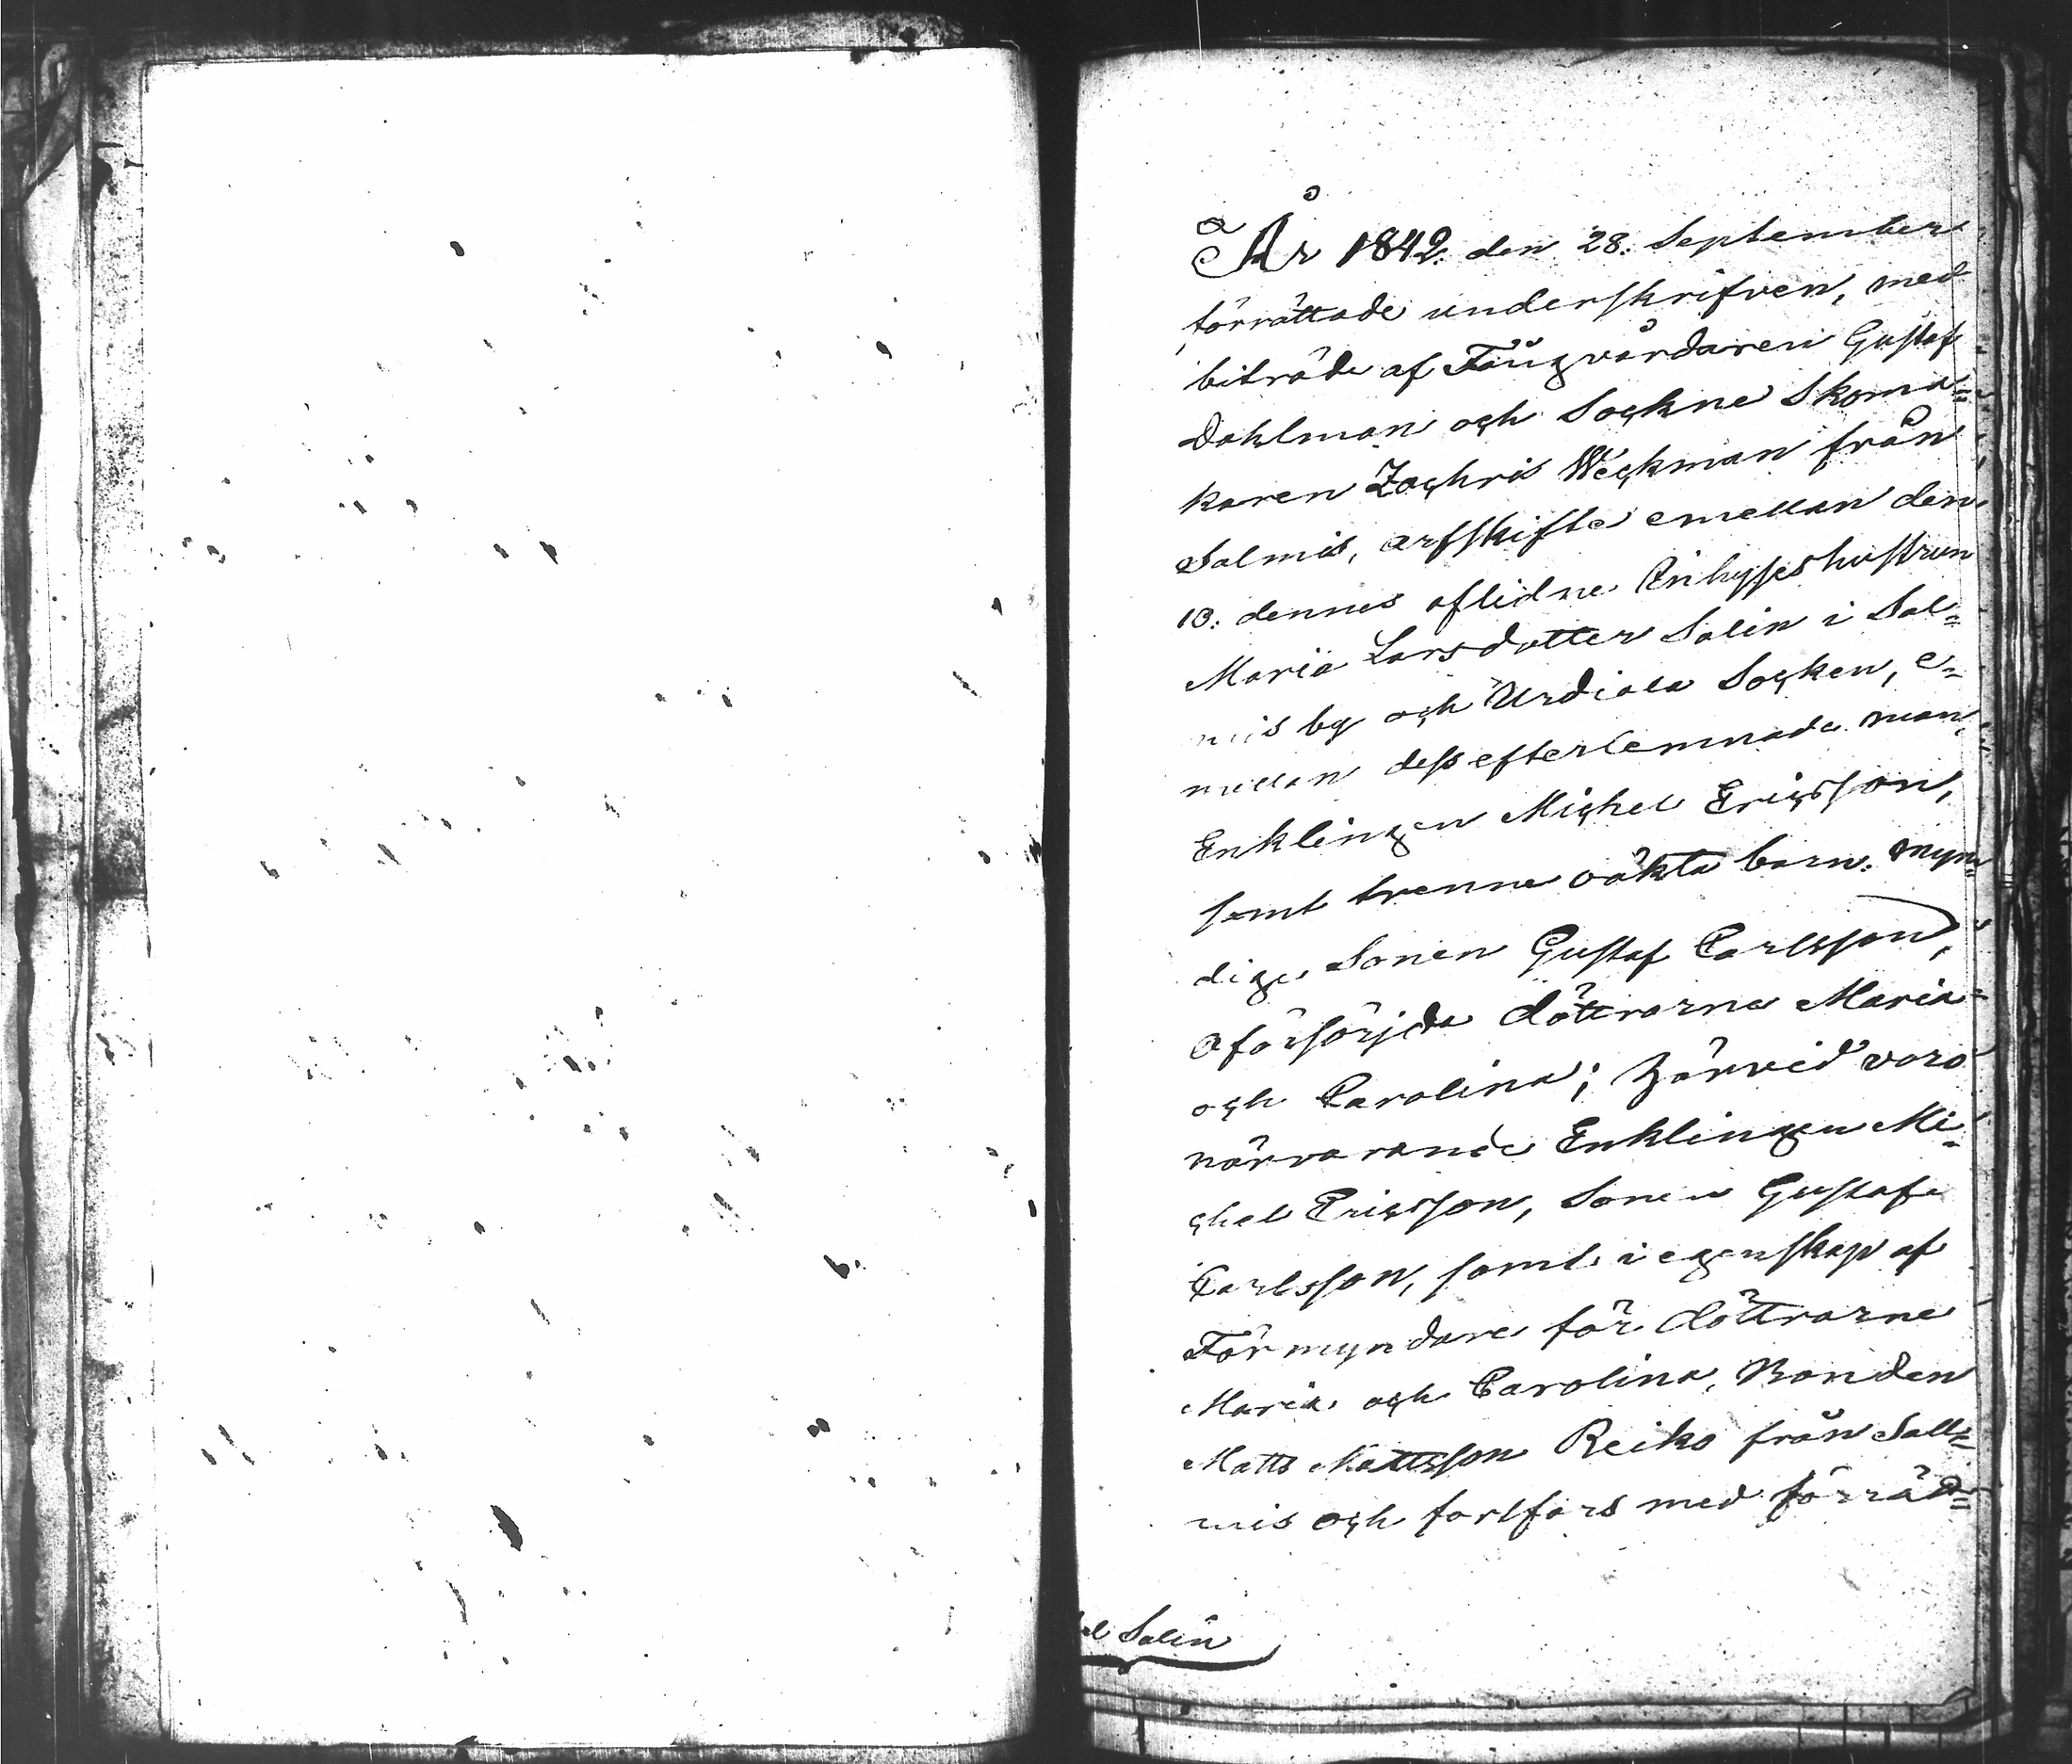 År 1842. den 28. September
förrättade underskrifven, med
biträde af Fångvårdaren Gustaf
Dahlman och Sockne Skoma=
karen Zachris Weckman från
Salmis, arfskifte emellan den
13: dennes aflidne Inhyseshustrun
Maria Larsdotter Salin i Sal=
mis by och Urdiala Socken, e=
mellan dess efterlemnade man,
Enklingen Michel Ericsson,
samt trenne oäkta barn: myn=
dige Sonen Gustaf Carlsson,
oförsörjda döttrarne Maria=
och Carolina; Härvid voro
närvarande Enklingen Mi=
chel Ericsson, Sonen Gustaf
Carlsson, samt i egenskap af
Förmyndare för döttrarne
Maria och Carolina, Bonden
Matts Mattsson Reiko från Sall=
mis och fortfors med förräd=
el Salin